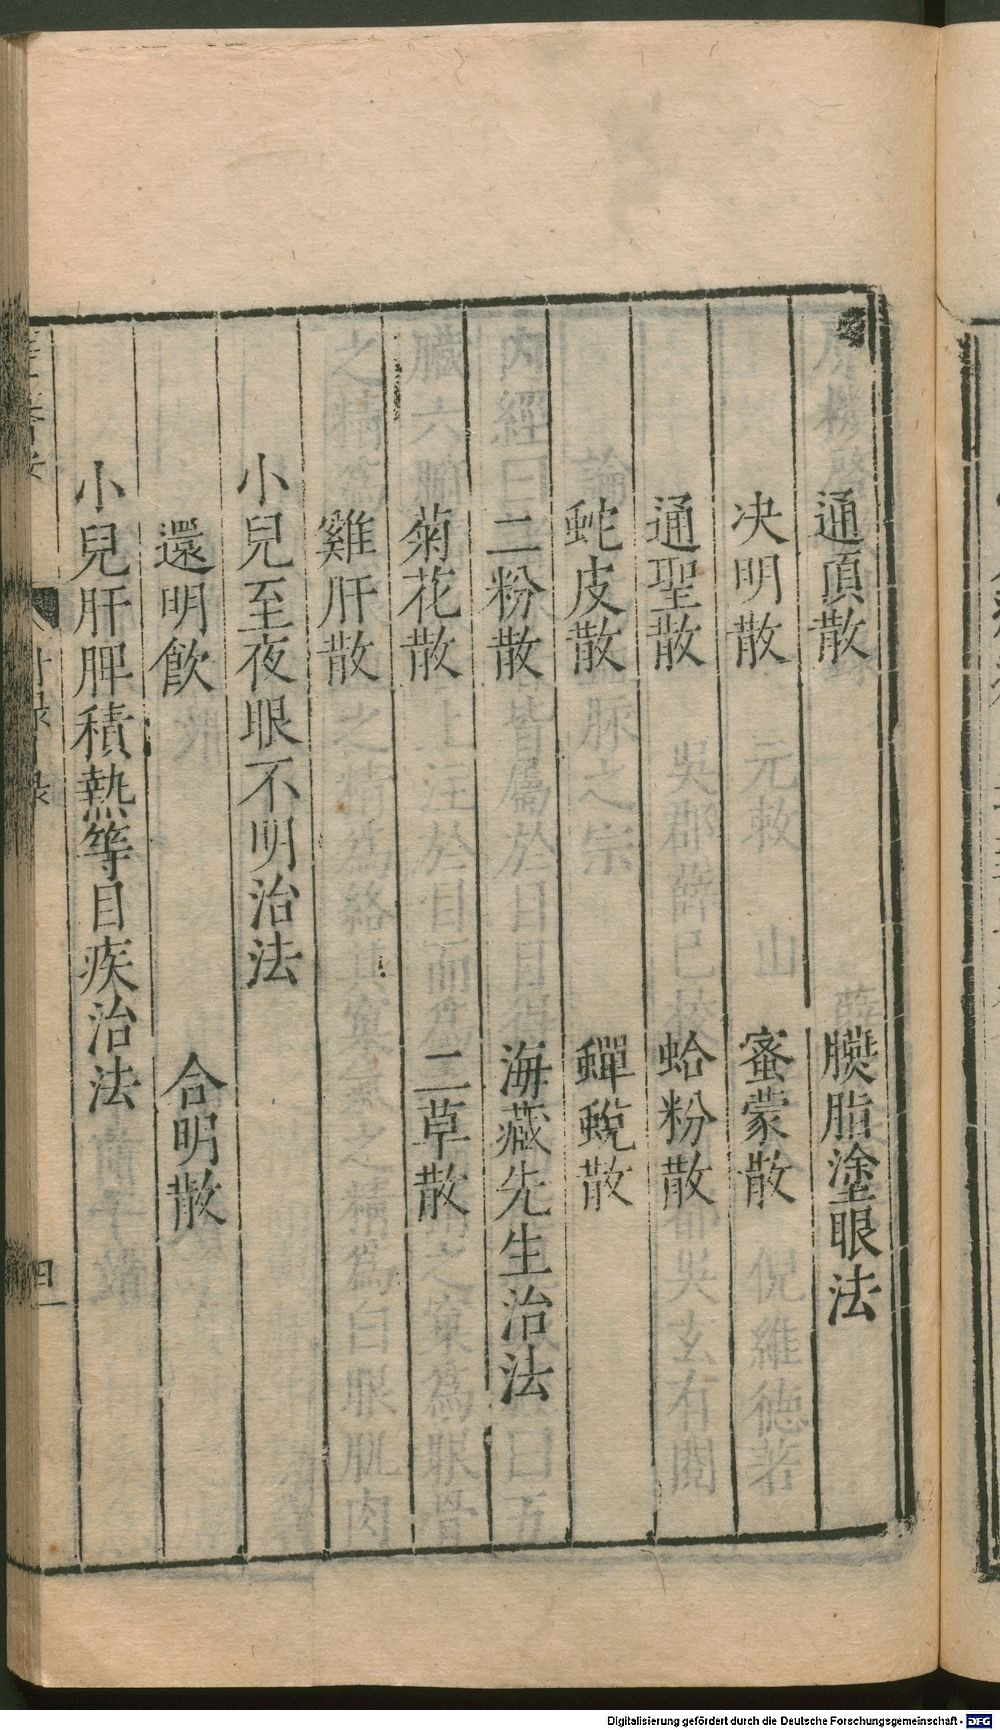 通頂散　臙脂塗眼法
决明散　蜜蒙散
通聖散　蛤粉散
蛇皮散　蟬蛻散
二粉散　海藏先生治法
菊花散　二草散
雞肝散
小兒至夜眼不明治法
還明飲　合明散
小兒肝脾積熱等目疾治法
Digitalisierung gefördert durch die Deutsche Forschungsgemeinschaft - DFG